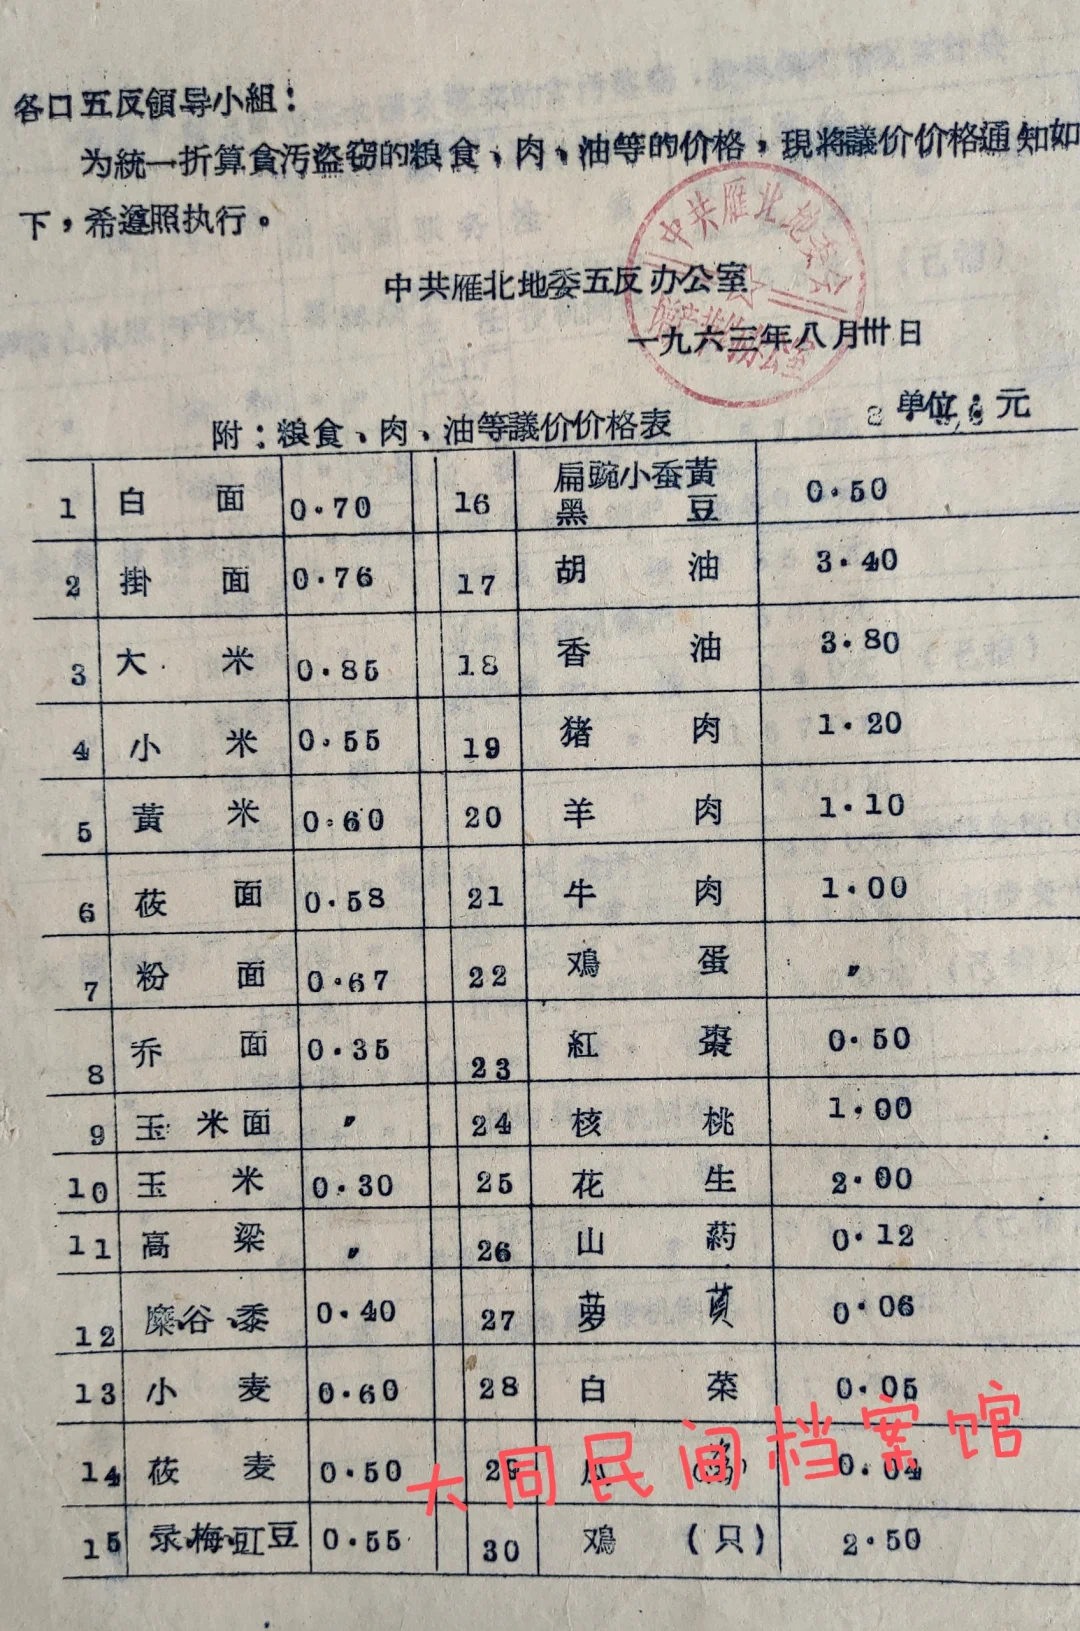 各口五反領导小組：
为統一折算貪汚盗窃的粮食、肉、油等的价格，現将議价价格通知如
下，希遵照执行。
中共雁北地委五反办公室
一九六三年八月卅日
附：粮食、肉、油等議价价格表 单位：元
1 白面 0.70 16 扁豌小蚕黄黑豆 0.50
2 掛面 0.76 17 胡油 3.40
3 大米 0.85 18 香油 3.80
4 小米 0.55 19 猪肉 1.20
5 黄米 0.60 20 羊肉 1.10
6 莜面 0.58 21 牛肉 1.00
7 粉面 0.67 22 鴂蛋 〃
8 乔面 0.35 23 紅棗 0.50
9 玉米面 〃 24 核桃 1.00
10 玉米 0.30 25 花生 2.00
11 高粱 〃 26 山葯 0.12
12 糜、谷、黍 0.40 27 萝 0.06
13 小麦 0.60 28 白菜 0.05
14 莜麦 0.50 29 瓜 0.04
15 录、梅、豇豆 0.55 30 鴂（只） 2.50
中共雁北地委会
办公室
大同民间档案馆